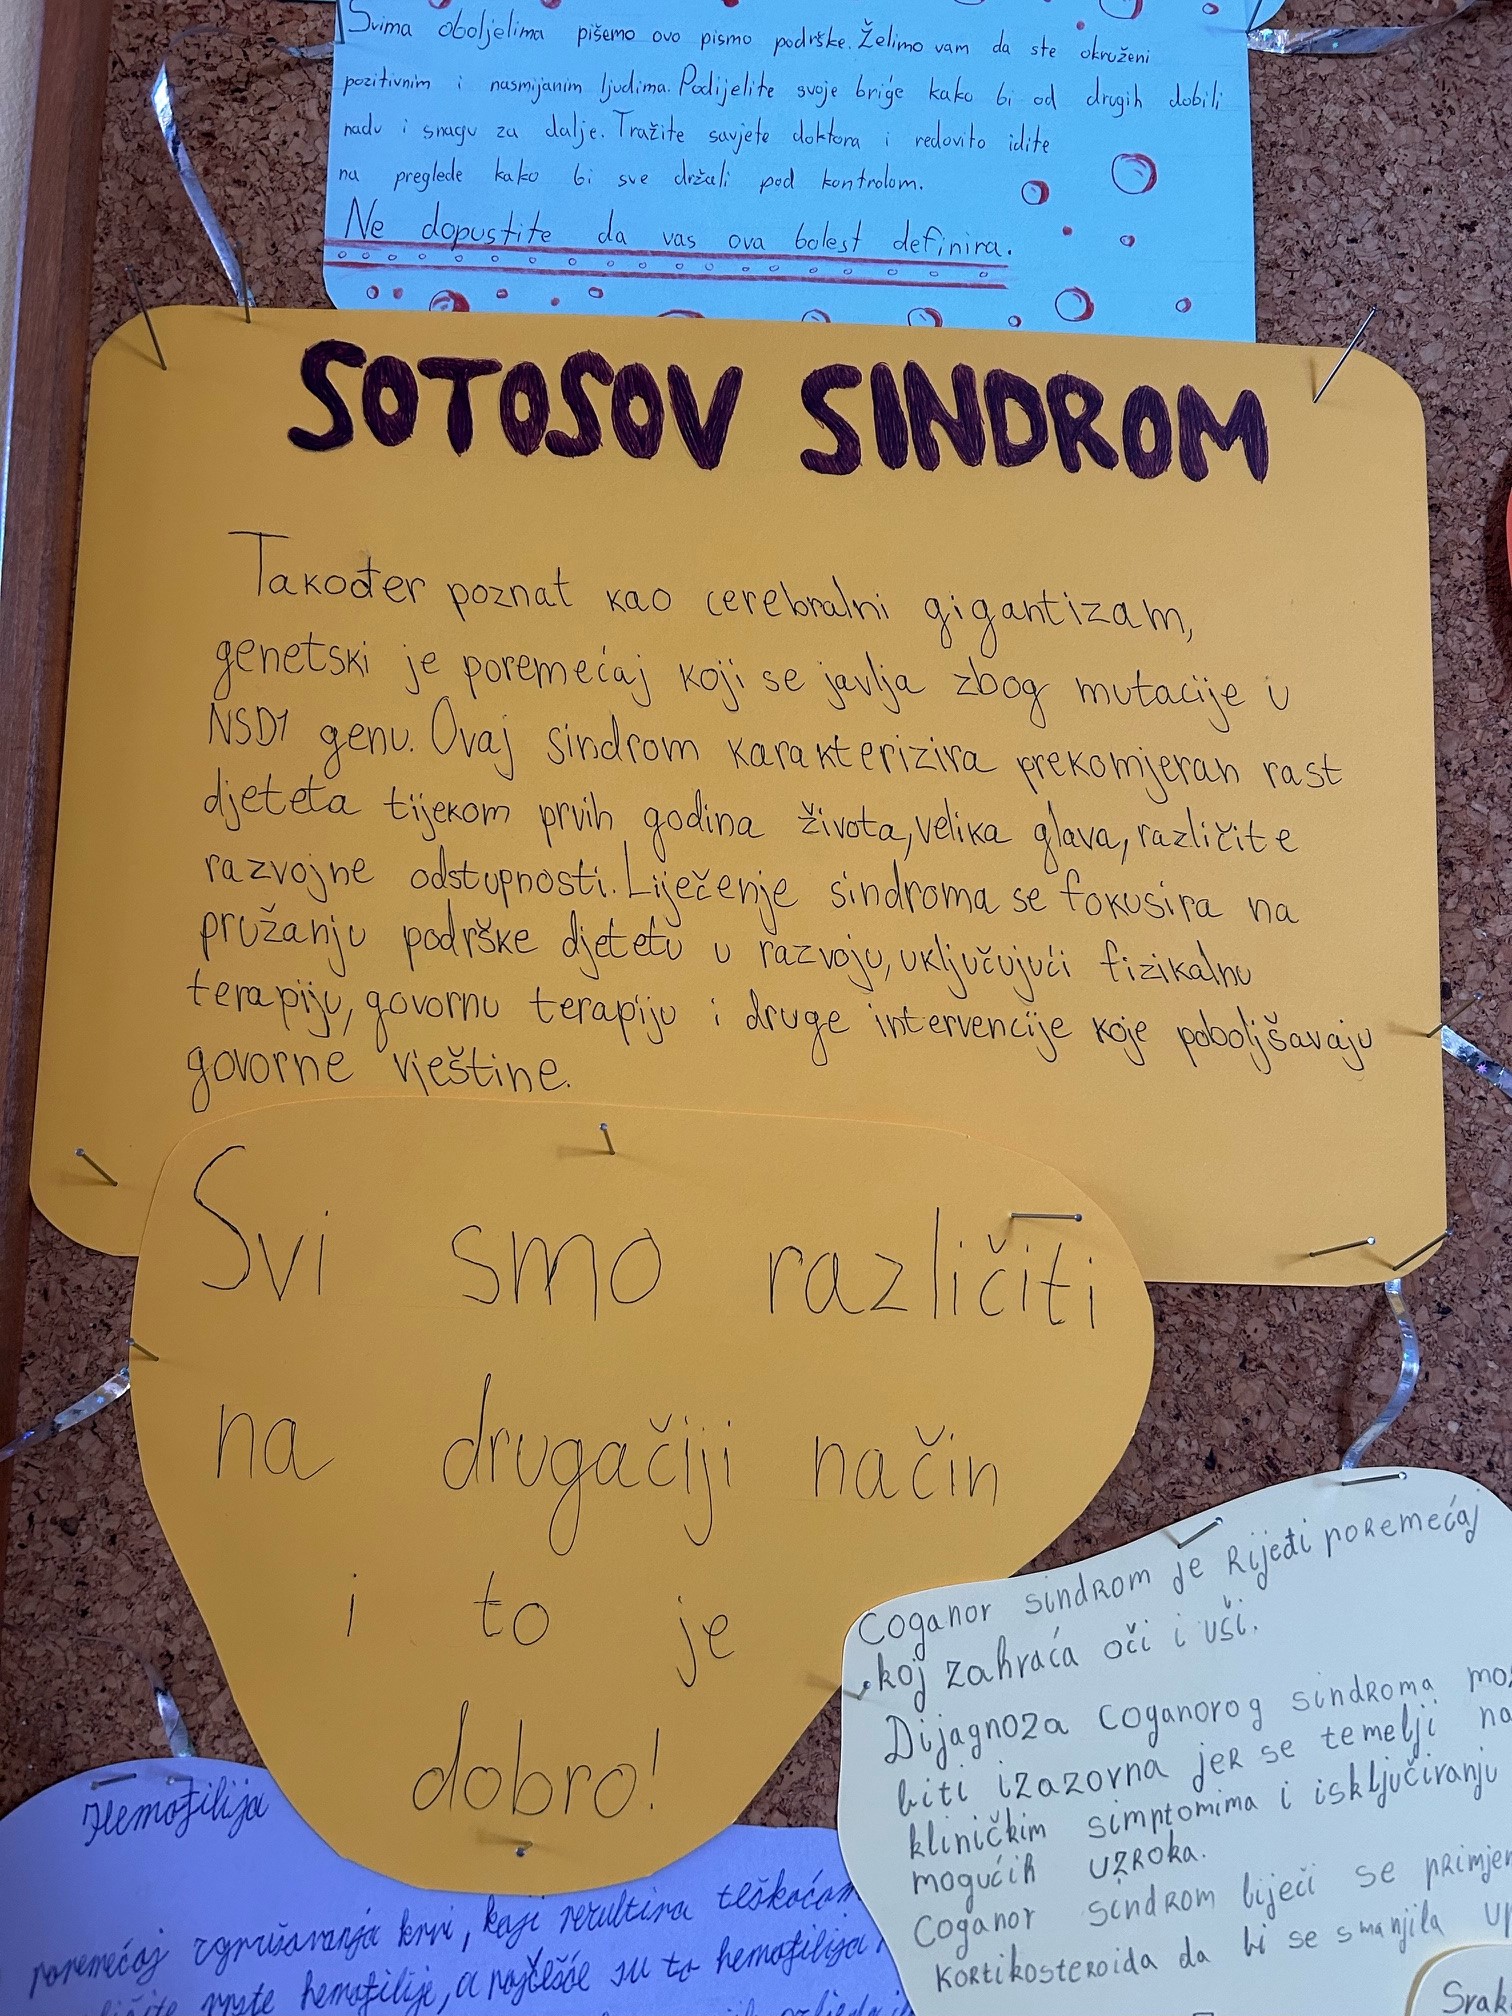 Svima oboljelima pišemo ovo pismo podrške. Želimo vam da ste okruženi
pozitivnim i nasmijanim ljudima. Podijelite svoje brige kako bi od drugih dobili
nadu i snagu za dalje. Tražite savjete doktora i redovito idite
na preglede kako bi sve držali pod kontrolom.
Ne dopustite da vas ova bolest definira.
SOTOSOV SINDROM
Također poznat kao cerebralni gigantizam,
genetski je poremećaj koji se javlja zbog mutacije u
NSD1 genu. Ovaj sindrom karakterizira prekomjeran rast
djeteta tijekom prvih godina života, velika glava, različite
razvojne odstupnosti. Liječenje sindroma se fokusira na
pružanju podrške djetetu u razvoju, uključujući fizikalnu
terapiju, govornu terapiju i druge intervencije koje poboljšavaju
govorne vještine.
Svi smo različiti
na drugačiji način
i to je
dobro!
Coganor sindrom je Rijeđi poremećaj
koj zahvaća oči i uši.
Dijagnoza Coganorog sindroma
biti izazovna jer se temelji na
kliničkim simptomima i isključiranju
mogućih uzroka.
Coganor sindrom liječi se
kortikosteroida da bi se smanjila
Hemofilija
poremećaj zgrušavanja krvi, koji rezultira
vrste hemofilije, a najčešće su to hemofilija